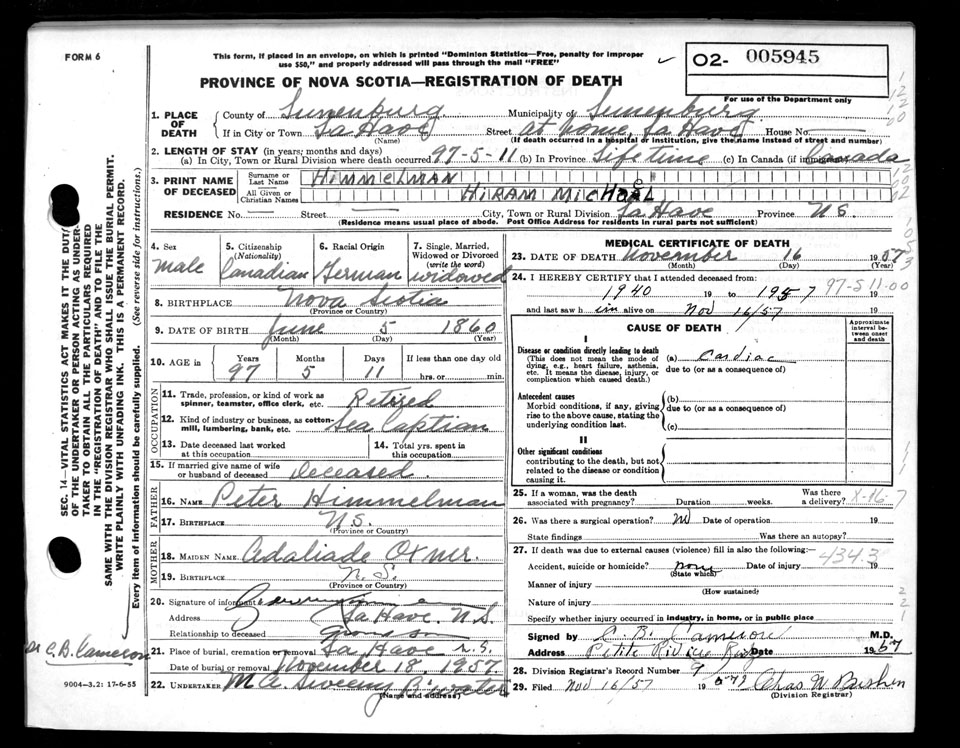 FORM 6
This form, if placed in an envelope, on which is printed "Dominion Statistics—Free, penalty for improper
use $50," and properly addressed will pass through the mail "FREE"
O2- 005945
PROVINCE OF NOVA SCOTIA—REGISTRATION OF DEATH
For use of the Department only
1. PLACE OF DEATH
County of Lunenburg Municipality of Lunenburg
If in City or Town La Have Street at home, La Have House No.
(Name) (If death occurred in a hospital or institution, give the name instead of street and number)
2. LENGTH OF STAY (in years; months and days)
(a) In City, Town or Rural Division where death occurred 97-5-11 (b) In Province Life time (c) In Canada (if immigrant) Canada
3. PRINT NAME OF DECEASED
Surname or Last Name HIMMELMAN
All Given or Christian Names HIRAM MICHAEL
RESIDENCE No. — Street — City, Town or Rural Division La Have Province N.S.
(Residence means usual place of abode. Post Office Address for residents in rural parts not sufficient)
4. Sex
male
5. Citizenship
(Nationality)
Canadian
6. Racial Origin
German
7. Single, Married,
Widowed or Divorced
(write the word)
widowed
8. BIRTHPLACE Nova Scotia
(Province or Country)
9. DATE OF BIRTH June 5 1860
(Month) (Day) (Year)
10. AGE in
Years Months Days If less than one day old
97 5 11 hrs. or min.
OCCUPATION
11. Trade, profession, or kind of work as
spinner, teamster, office clerk, etc. Retired
12. Kind of industry or business, as cotton-
mill, lumbering, bank, etc. Sea Captian
13. Date deceased last worked
at this occupation
14. Total yrs. spent in
this occupation
15. If married give name of wife
or husband of deceased deceased.
FATHER
16. NAME Peter Himmelman
17. BIRTHPLACE N.S.
(Province or Country)
MOTHER
18. MAIDEN NAME Adaliade Oxner.
19. BIRTHPLACE N.S.
(Province or Country)
20. Signature of informant
Address La Have. N.S.
Relationship to deceased Grandson
21. Place of burial, cremation or removal La Have N.S.
Date of burial or removal November 18, 1957.
22. UNDERTAKER M.A. Sweeny B'water
(Name and address)
MEDICAL CERTIFICATE OF DEATH
23. DATE OF DEATH November 16 1957
(Month) (Day) (Year)
24. I HEREBY CERTIFY that I attended deceased from:
97-5 11.00
1940 19 to 1957 19
and last saw him alive on Nov 16/57 19
CAUSE OF DEATH
Approximate
interval be-
tween onset
and death
I
Disease or condition directly leading to death
(This does not mean the mode of
dying, e.g., heart failure, asthenia,
etc. It means the disease, injury, or
complication which caused death.)
(a) Cardiac
due to (or as a consequence of)
Antecedent causes
Morbid conditions, if any, giving
rise to the above cause, stating the
underlying condition last.
(b)
due to (or as a consequence of)
(c)
II
Other significant conditions
contributing to the death, but not
related to the disease or condition
causing it.
25. If a woman, was the death
associated with pregnancy? Duration weeks.
Was there
a delivery? X-16-7
26. Was there a surgical operation? no Date of operation 19
State findings Was there an autopsy?
27. If death was due to external causes (violence) fill in also the following:—
434.3
Accident, suicide or homicide? none Date of injury 19
(State which)
Manner of injury
(How sustained)
Nature of injury
Specify whether injury occurred in industry, in home, or in public place
Signed by C. B. Cameron M.D.
Address Petite Riviere Date 1957
28. Division Registrar's Record Number 9
29. Filed Nov 16/57 19 Chas W Bushen
(Division Registrar)
SEC. 14—VITAL STATISTICS ACT MAKES IT THE DUTY
OF THE UNDERTAKER OR PERSON ACTING AS UNDER-
TAKER TO OBTAIN ALL THE PARTICULARS REQUIRED
IN THE "REGISTRATION OF DEATH" AND TO FILE THE
SAME WITH THE DIVISION REGISTRAR WHO SHALL ISSUE THE BURIAL PERMIT.
WRITE PLAINLY WITH UNFADING INK. THIS IS A PERMANENT RECORD.
Every item of information should be carefully supplied. (See reverse side for instructions.)
Dr C.B. Cameron
9004-3.2: 17-6-55